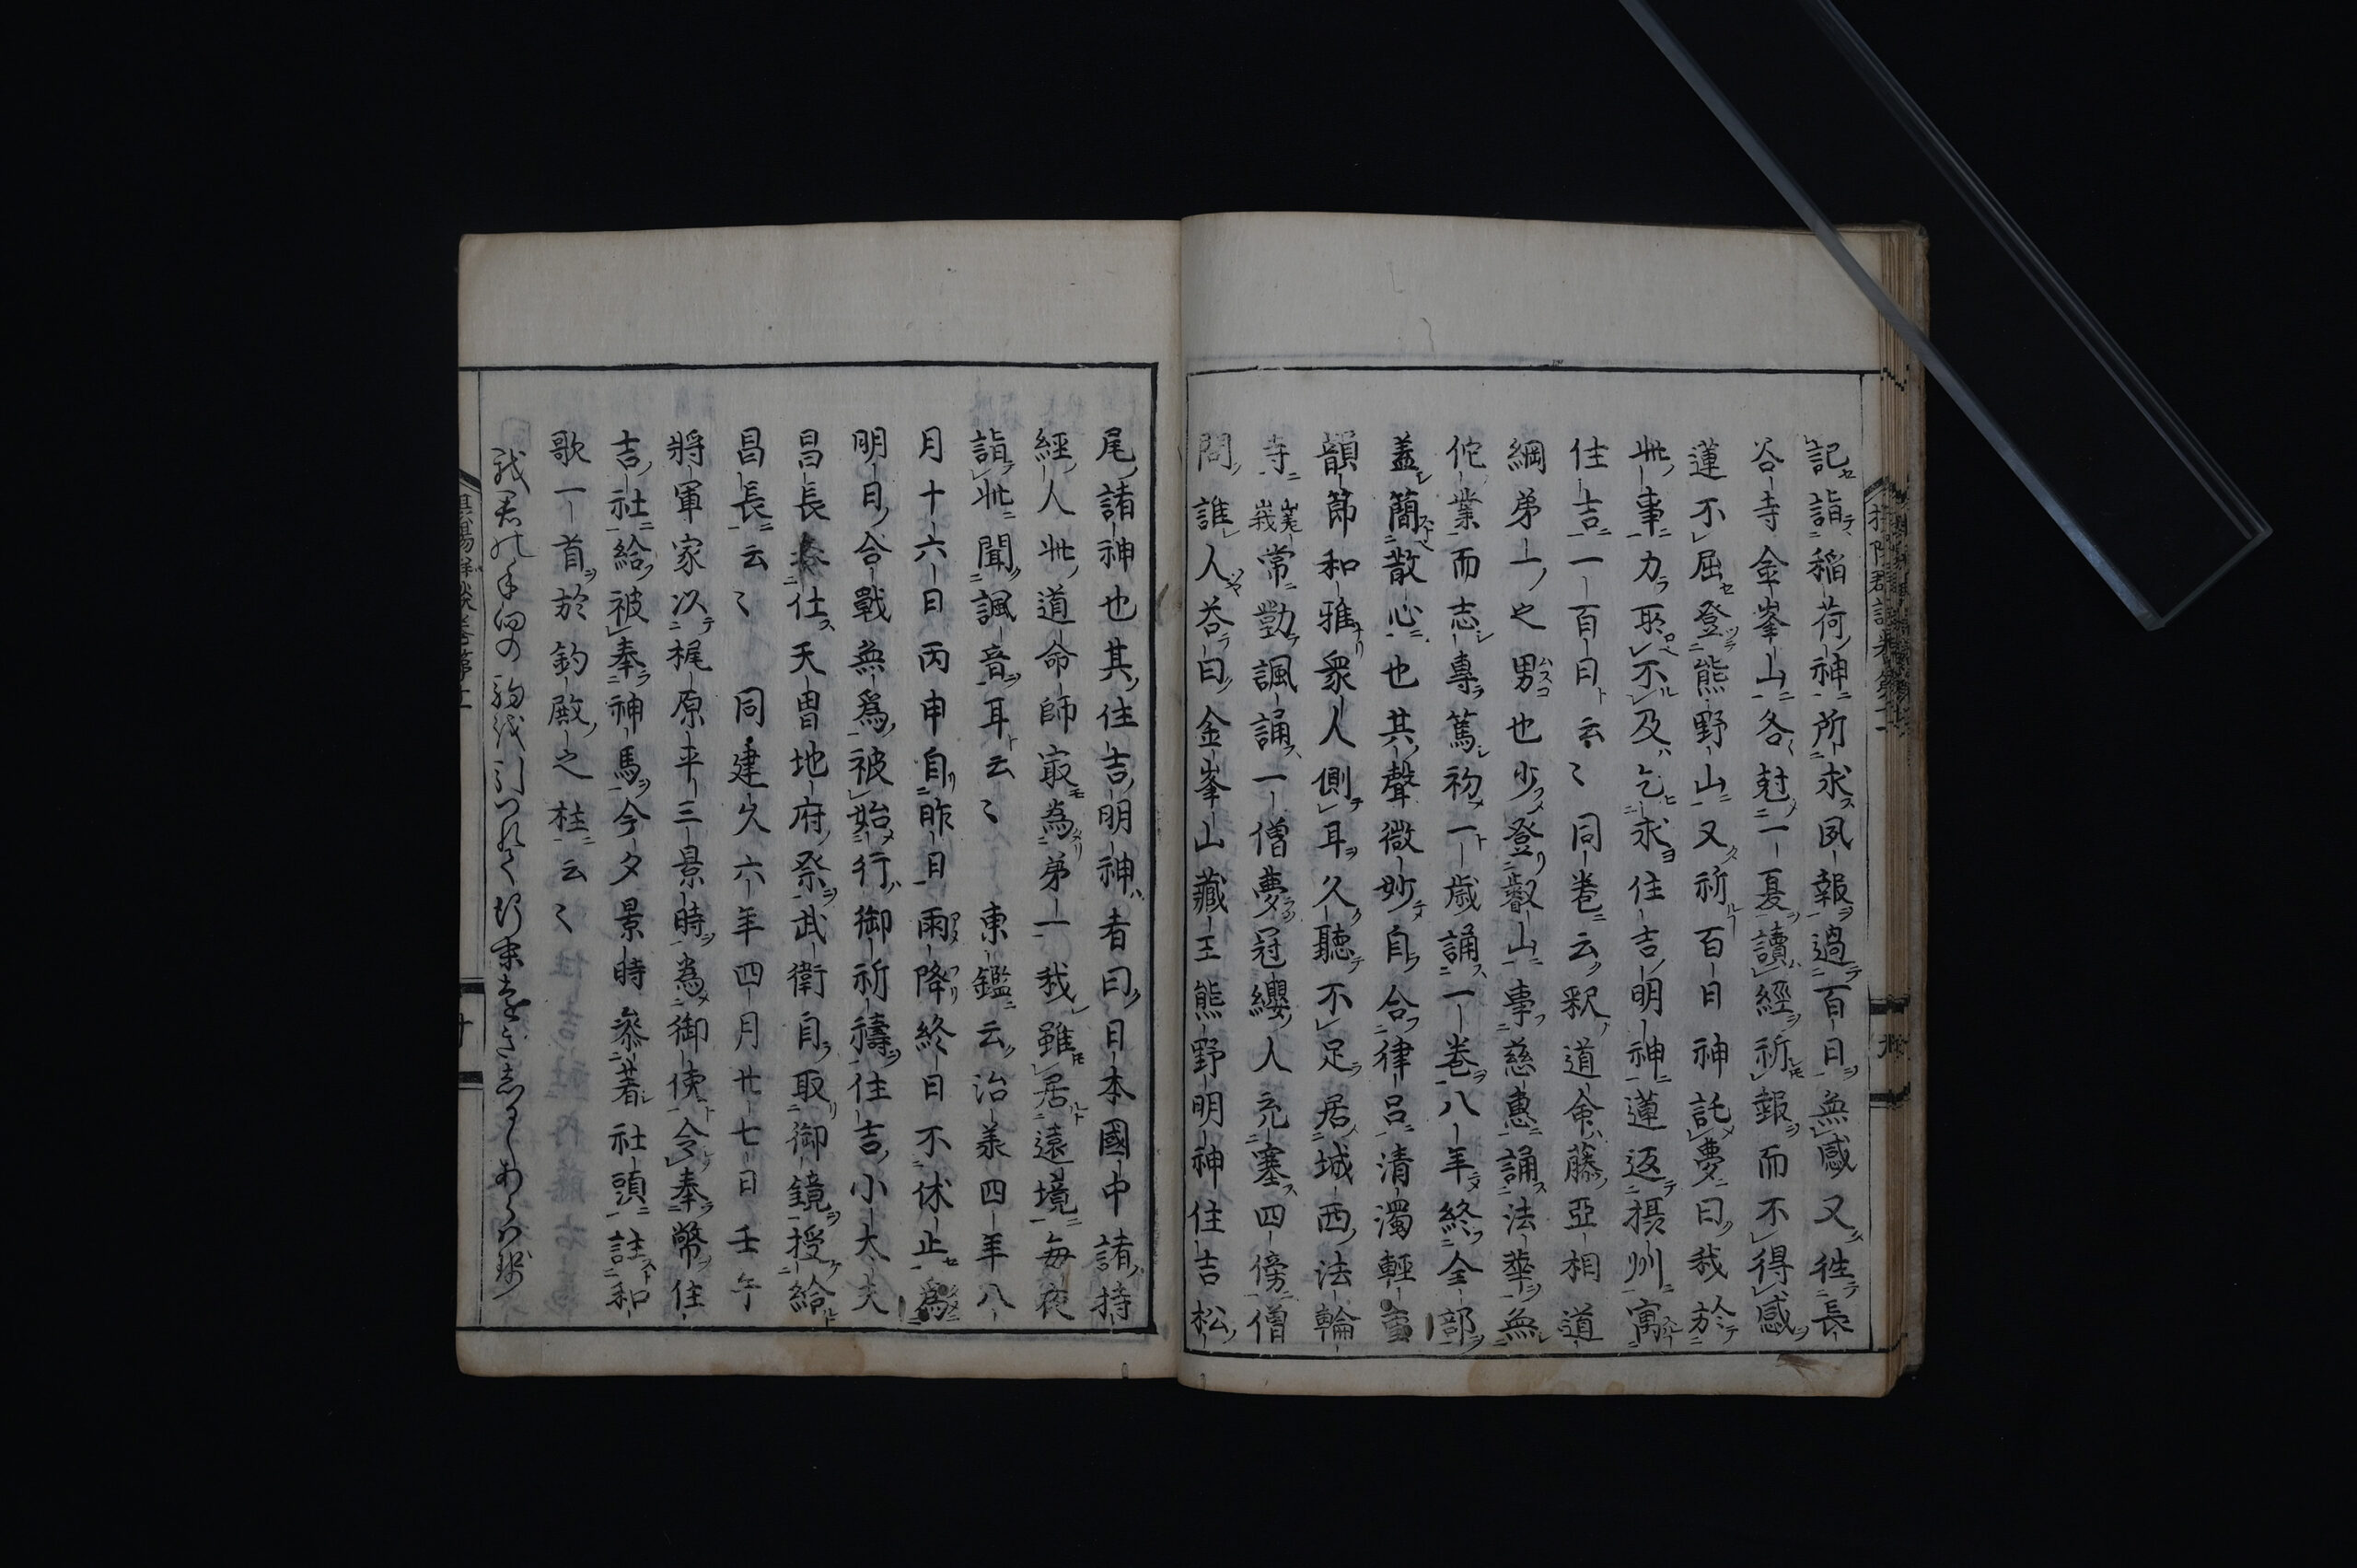 記詣稲荷神所求夙報過百日無感又徃長
谷寺金峯山各尅一夏讀經祈報而不得感
蓮不屈登熊野山又祈百日神託夢曰我於
此事力耴不及乞求住吉明神蓮返摂州寓
住吉一百日云〻同巻云釈道命藤亞相道
綱弟一之男也少登叡山事慈惠誦法華無
佗業而志專篤初一歳誦一巻八年終全部
盖簡散心也其聲微妙自合律呂清濁輕重
韻節和雅衆人側耳久聽不足居城西法輪
寺嵯峩常勤諷誦一僧夢冠纓人充塞四傍僧
問誰人荅曰金峯山藏王熊野明神住吉松
尾諸神也其住吉明神者曰日本國中諸持
經人此道命師㝡為弟一我雖居遠境毎夜
詣此聞諷音耳云〻東鑑云治羕四年八
月十六日丙申自昨日雨降終日不休止爲
明日合戰無爲被始行御祈禱住吉小大夫
昌長奉仕天曹地府祭武衛自取御鏡授給
昌長云〻同建久六年四月廿七日壬午
將軍家以梶原平三景時為御使令奉幣住
吉社給被奉神馬今夕景時叅著社頭註和
歌一首於釣殿之柱云〻
我君の手向の駒を引つれて行末遠きしるしあらはせ